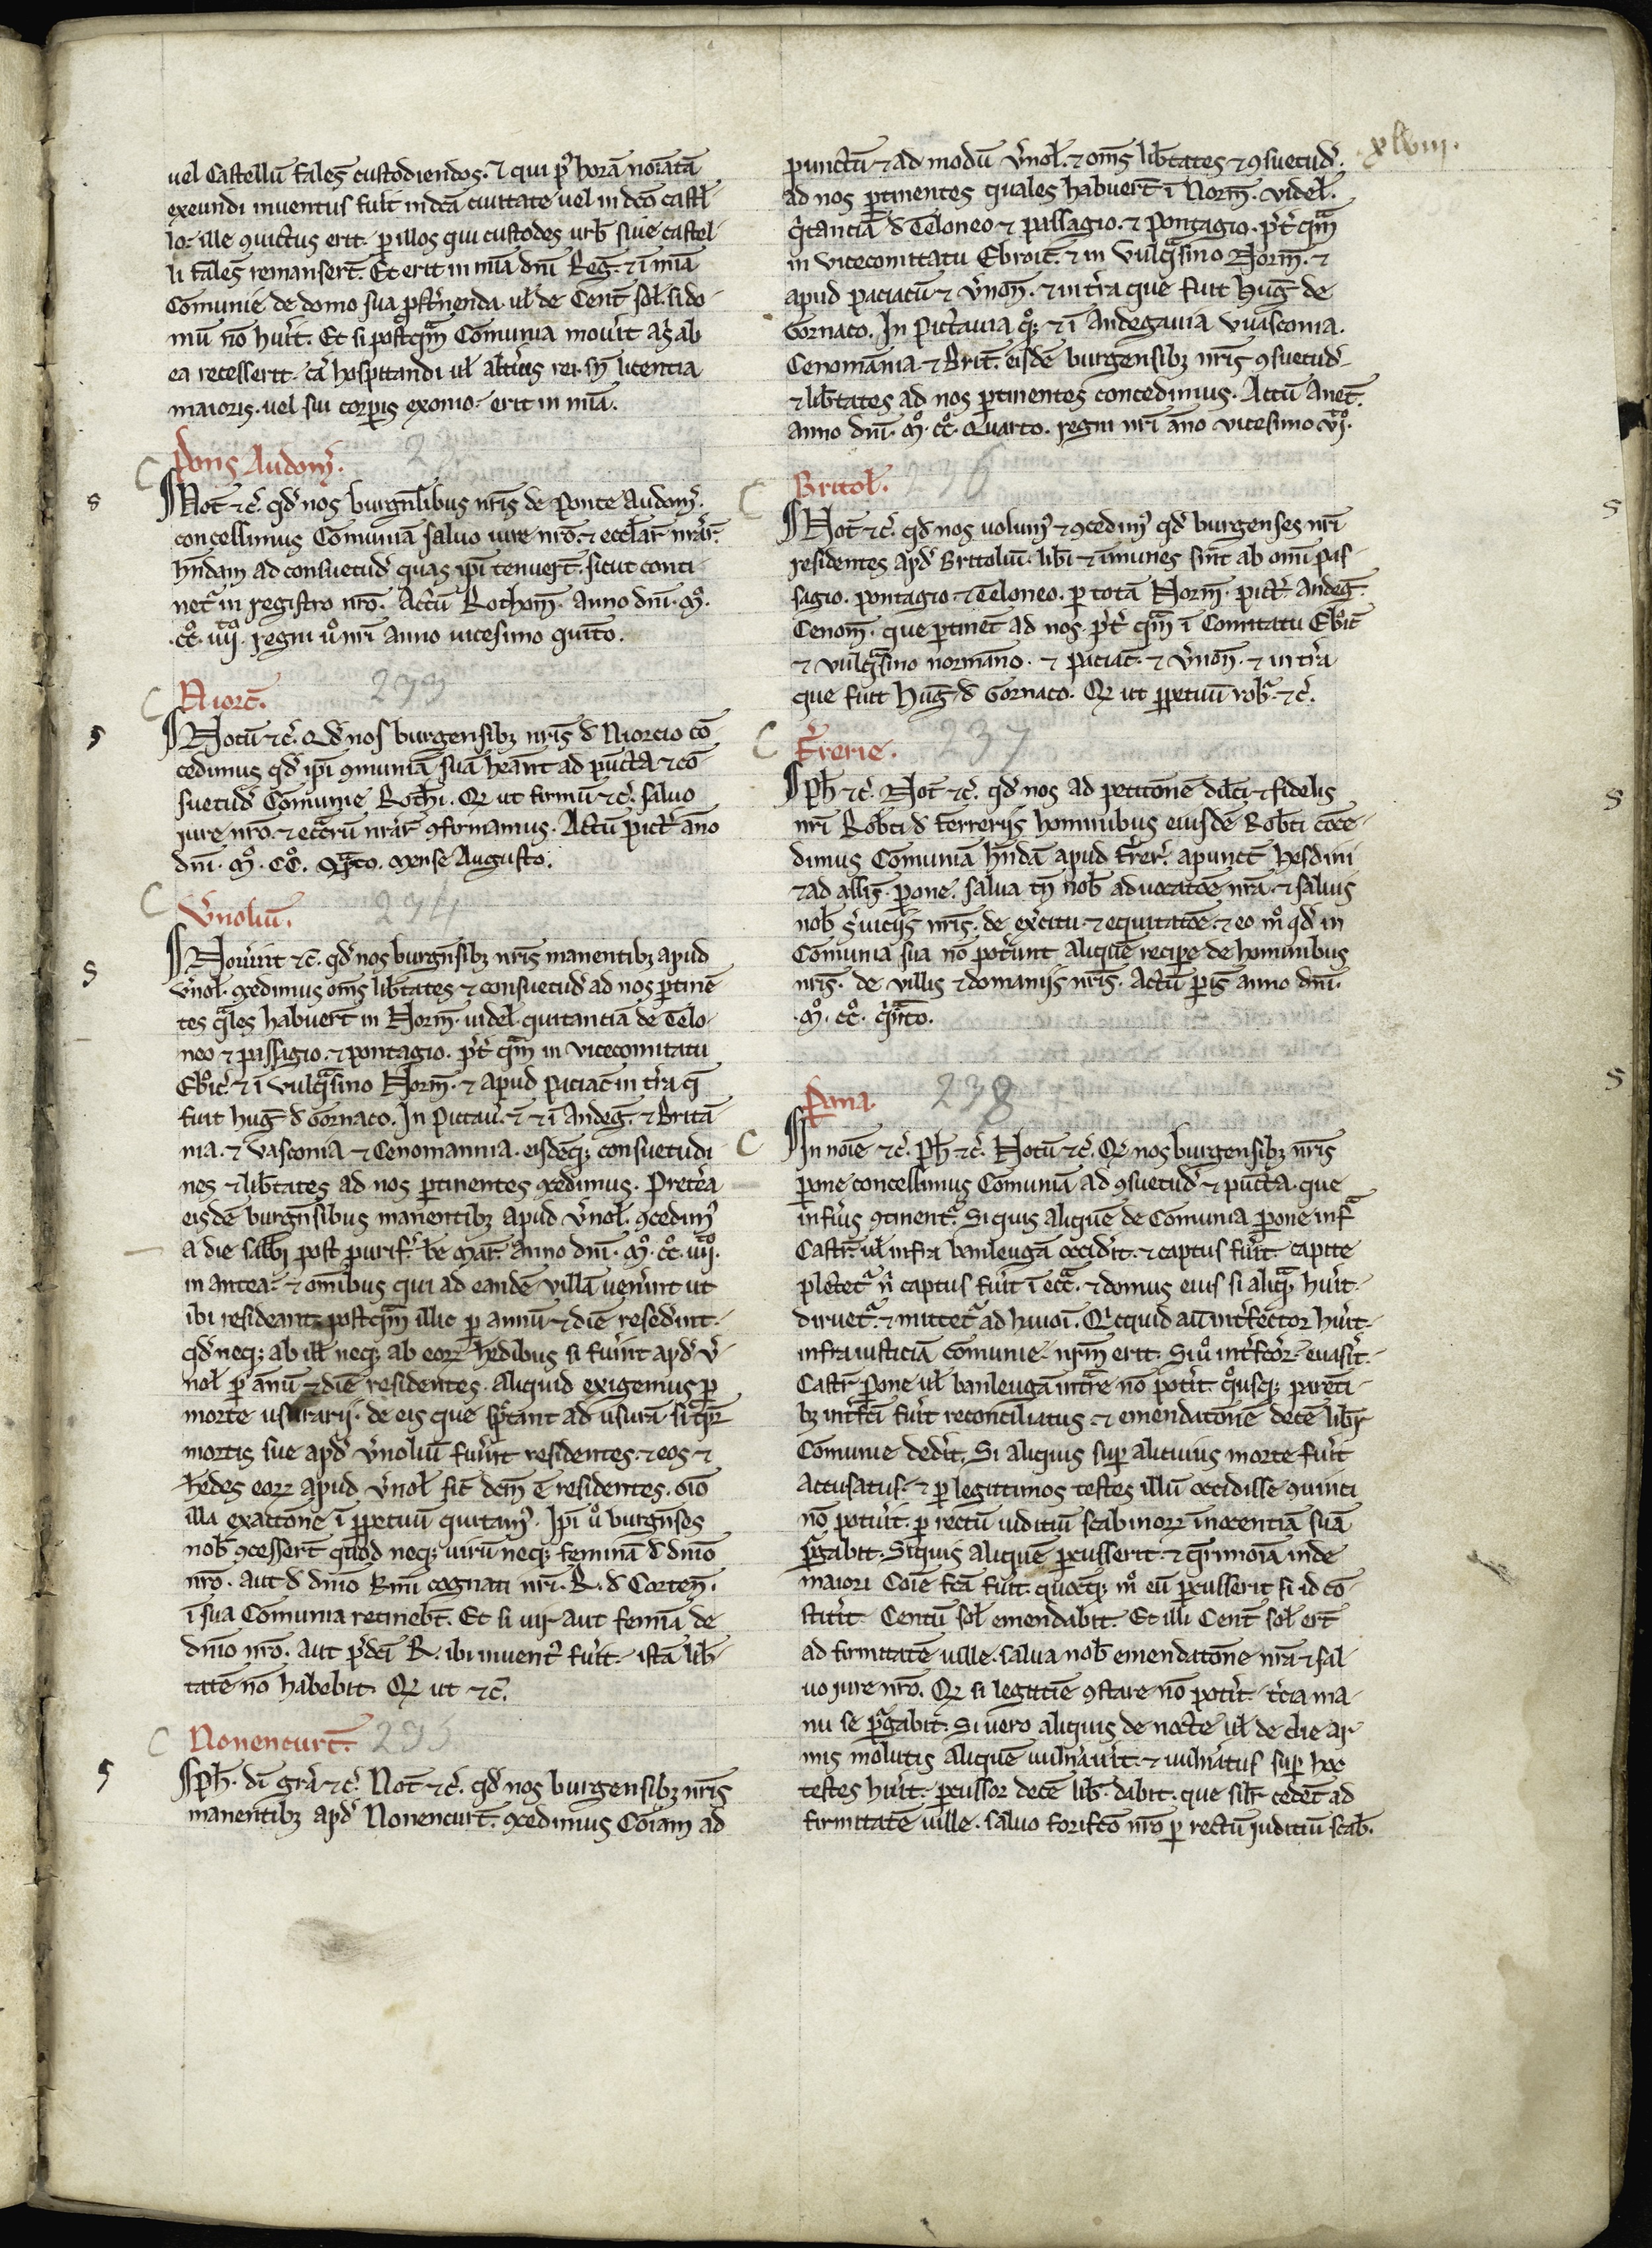 xlviii.
uel Castellũ taleˢ custodiendos. ⁊ qui p̉ horã noiatã
exeundi inuentus fuit̉ in dc̃a ciuitate uel in dc̃o castl̃
lo. ille ꝯuictus erit. ꝑ illos qui custodes urb̃ siue castel-
li taleˢ remanser̃t. Et erit in mĩa dñi Reg̃. ⁊ ĩ mĩa
Comunie de domo sua ꝓst̉nenda. ul̃ de Cent̃ sol̃. si do-
mũ nõ hũit. Et si postq̃m Comunia mou̓it ab
ea recesserit. cã hospitandi ul̃ alt̓ius rei. sñ licentia
maioris. uel sui corꝑis exonio. erit in mĩa.
Pons Audom̃.
Not̃ ⁊c̃. qd̓ nos burgñsibus nr̃is de Ponte Audom̃.
concessimus Comuniã saluo iure nr̃o. ⁊ eccl̃ar̃ nr̃ar̃.
hñdam ad consuetud̓ quas ip̃i tenuer̃t. sicut conti
net̃ in registro nr̃o. Actũ Rothom̃. anno dñi. M̊.
.cc̊. iiij̊. regni ů nr̃i anno uicesimo quĩto.
Niort̃. 233
Notũ ⁊c̃. Qd̓ nos burgensibꝫ nr̃is d̓ Niorcio cõ
cedimus qd̓ ip̃i ꝯmuniã suã heãnt ad pũcta ⁊ cõ-
suetud̓ Comunie Rothi. Qꝫ ut firmũ ⁊c̃. saluo
iure nr̃o. ⁊ ecc̃arũ nr̃ar̃ ꝯfirmamus. Actũ pict̃ ãno
dñi. M̊. CC̊. q̃rto. mense Augusto.
V̓noliũ. 234
Nou̓int ⁊c̃. qd̓ nos burgñsibꝫ nr̃is manentibꝫ apud
v̓nol̃. ꝯcedimus om̃s lib̃tates ⁊ consuetud̓ ad nos ꝑtinẽ
tes q̃les habuer̃t in Norm̃. uidel̃. quitanciã de Telo-
neo ⁊ passagio. ⁊ pontagio. p̓t̓ q̃m in vicecomitatu
Ebr̊ic̃. ⁊ ĩ vulq̃sino Norm̃. ⁊ apud paciac̃ in t̓ra q̃
fuit hug̃ d̓ Gornaco. In pictau̓. ⁊ ĩ Andeg̃. ⁊ Britã
nia. ⁊ Vasconia ⁊ Cenomannia. eisdẽqꝫ consuetudi
nes ⁊ lib̃tates ad nos ꝑtinentes ꝯcedimus. Pret̓ea
eisdẽ burgñsibus manentibꝫ apud v̓nol̃. ꝯcedimꝰ
a die sabb̃i post purif̃. b̃e mar̃. anno dñi. M̊. cc̊. iiij̊.
in antea. ⁊ om̃ibus qui ad eandẽ villã uen̓int ut
ibi resideant. postq̃m illic ꝑ annũ ⁊ diẽ resed̓int.
qd̓ neqꝫ ab ill̃ neqꝫ ab eoꝝ h̓edibus si fu̓int apd̓ v̓
nol̃ ꝑ ãnũ ⁊ diẽ residentes. aliquid exigemus ꝑ
morte usurarij. de eis que sp̃tãnt ad usurã. si tp̃r
mortis sue apd̓ v̓noliũ fu̓int residentes. ⁊ eos ⁊
h̓edes eoꝝ apud v̓nol̃ sic̃ dc̃m ẽ residentes. oĩo
illa exactõne ĩ ꝑpetuũ quitamꝰ. Ip̃i ů burgñses
nob̃ ꝯcesser̃t quod neqꝫ uirũ neqꝫ feminã d̓ dñio
nr̃o. aut d̓ dñio kmĩ cognati nr̃i. R. d̓ Corten̓.
ĩ sua Comunia retinebt̃. Et si uir aut femĩa de
dñio nr̃o. aut p̓dc̃i R. ibi inuentꝰ fu̓it. istã lib̃-
tatẽ nõ habebit. Qꝫ ut ⁊c̃.
Nonencurt̃. 235
Ph̃. di gr̃a ⁊c̃. Not̃ ⁊c̃. qd̓ nos burgensibꝫ nr̃is
manentibꝫ apd̓ Nonencurt̃. ꝯcedimus Coĩam ad
punctũ ⁊ ad modũ v̓nol̃. ⁊ om̃s lib̃tates ⁊ ꝯsuetud̓.
ad nos ꝑtinentes quales habuer̃t ĩ Norm̃. videl̃.
q̓tanciã d̓ Teloneo ⁊ passagio. ⁊ Pontagio. p̓t̓ q̃m
in vicecomitatu Ebroic̃. ⁊ in vulq̃sino Norm̃. ⁊
apud paciacũ ⁊ v̓non̓. ⁊ in t̓ra que fuit hug̃ de
Gornaco. In Pict̃auia q̊qꝫ ⁊ ĩ Andegauia Vuasconia.
Cenomãnia. ⁊ Brit̃. eisdẽ burgensibꝫ nr̃is ꝯsuetud̓
⁊ lib̃tates ad nos ꝑtinentes concedimus. Actũ Anet̃.
anno dñi. M̊. cc̊. quarto. regni nr̃i ãno vicesimo vj̊.
Britol̃. 236
Not̃ ⁊c̃. qd̓ nos uolumꝰ ⁊ ꝯcedimꝰ qd̓ burgenses nr̃i
residentes apd̓ Britoliũ. lib̃i ⁊ ĩmunes sint ab om̃i pas-
sagio. pontagio. ⁊ Teloneo. ꝑ totã Norm̃. pict̃. Andeg̃.
Cenom̃. que ꝑtinẽt ad nos. p̓t̓ q̃m ĩ Comitatu Ebr̊ic̃
⁊ vulq̃sino normãno. ⁊ paciac̃. ⁊ v̓non̓. ⁊ in t̓ra
que fuit hug̃ d̓ Gornaco. Qꝫ ut ꝑpetuũ rob̃. ⁊c̃.
Fr̃erie. 237
Ph̃ ⁊c̃. Not̃ ⁊c̃. qd̓ nos ad petitõnẽ dilc̃i ⁊ fidelis
nr̃i Rob̃ti d̓ Ferrerijs hominibus eiusdẽ Rob̃ti cõce-
dimus Comuniã hñdã apud fr̃er̃. apunct̃ Hesdini
⁊ ad allis̃ perone. salua tñ nob̃ aduocatõe nr̃a. ⁊ saluis
nob̃ s̓uiciis nr̃is. de ex̓citu ⁊ equitatõe. ⁊ eo m̊ qd̓ in
Comunia sua nõ pot̓unt aliquẽ recipe de hominibus
nr̃is. de villis ⁊ domaniis nr̃is. Actũ ꝑis̃ anno dñi.
.M̊. cc̊. q̓nto.
Perona. 238
In noĩe ⁊c̃. Ph̃ ⁊c̃. Notũ ⁊c̃. Qꝫ nos burgensibꝫ nr̃is
perone concessimus Comuniã ad ꝯsuetud̓ ⁊ pũcta. que
inf̓ius ꝯtinent̃. Si quis aliquẽ de Comunia perone infᵃ
Castr̃ ul̃ infra banleugã occid̓it. ⁊ captus fu̓it. capite
plectet̃ ñ captus fu̓it ĩ ecc̃a. ⁊ domus eius si aliq̃ hũit.
diruet̃. ⁊ mittet̃ ad hnuoĩ. Q̓cquid aũ int̓fector hũit.
infra iusticiã Comunie. nr̃m erit. Si ů int̓fc̃or. euas̓it.
Castr̃ Perone ul̃ banleugã int̓re nõ pot̓it. q̊usqꝫ parẽti-
bꝫ int̓fc̃i fu̓it reconciliatus. ⁊ emendatõnẽ decẽ libr̃
Comunie ded̓it. Si aliquis sup alicuius morte fu̓it
accusatus. ⁊ ꝑ legittimos testes illũ occidisse ꝯuinci
nõ potu̓it. ꝑ rectũ iuditiũ scabinoꝝ ĩnocentiã suã
purgabit. Siquis aliquẽ ꝑcusserit. ⁊ q̃rimoĩa inde
maiori Coĩe fc̃a fuit. quocũqꝫ m̊ eũ ꝑcusserit si id cõ-
stit̓it. Centũ sol̃ emendabit. Et illi Cent̃ sol̃ er̃t
ad firmitatẽ uille. salua nob̃ emendatõne nr̃a ⁊ sal
uo iure nr̃o. Qꝫ si legitiẽ ꝯstare nõ pot̓it. t̓cia ma-
nu se purgabit. Si uero aliquis de nocte ul̃ de die ar
mis molutis aliquẽ uuln̓au̓it. ⁊ uuln̓atus sup hoc
testes hũit. ꝑcussor decẽ lib̃. dabit. que sil̃r cedẽt ad
firmitatẽ uille. saluo forifc̃o nr̃o ꝑ rectũ iuditiũ scab̃.